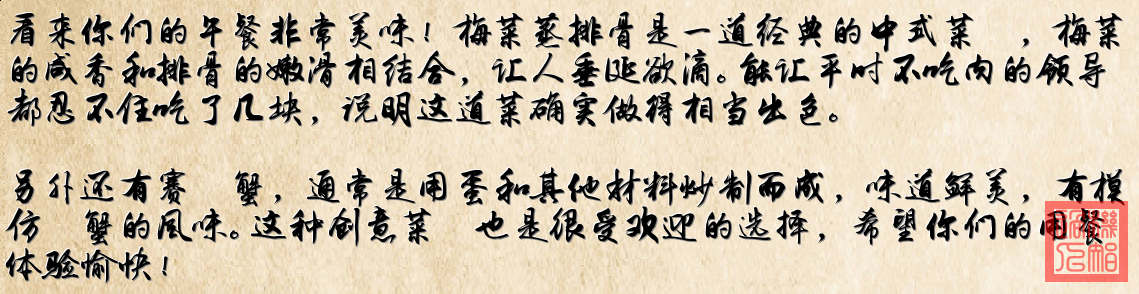 看来你们的午餐非常美味！梅菜蒸排骨是一道经典的中式菜 ，梅菜
的咸香和排骨的嫩滑相结合，让人垂涎欲滴。能让平时不吃肉的领导
都忍不住吃了几块，说明这道菜确实做得相当出色。
另外还有赛 蟹，通常是用蛋和其他材料炒制而成，味道鲜美，有模
仿 蟹的风味。这种创意菜 也是很受欢迎的选择，希望你们的用餐
体验愉快！